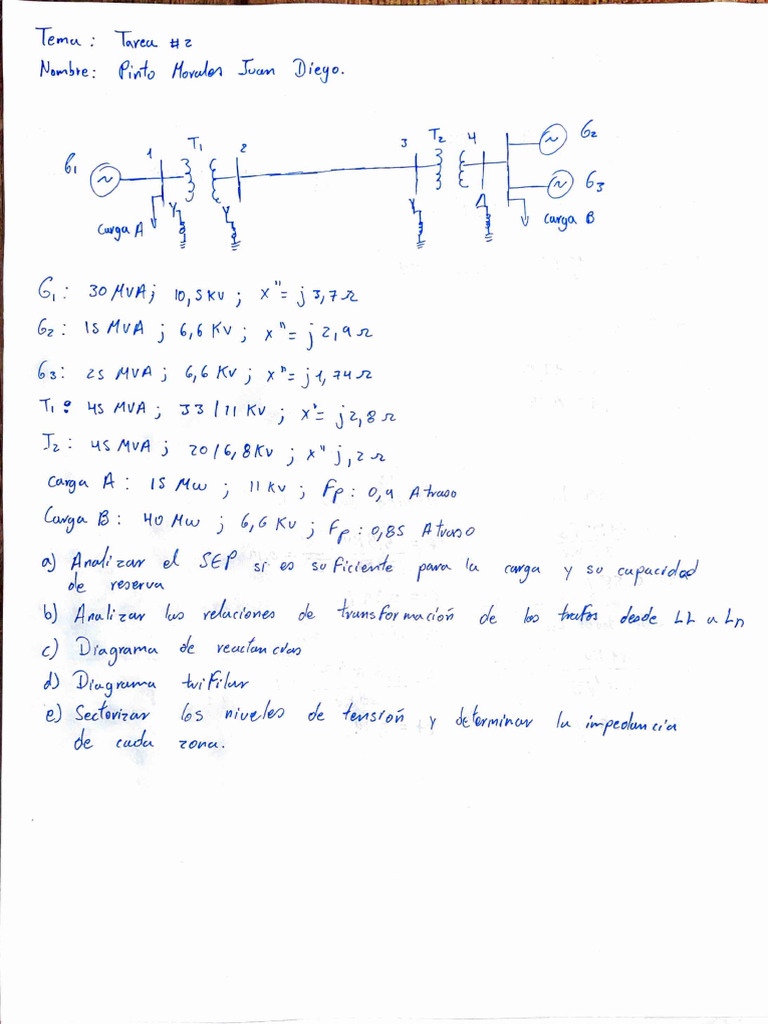 Tema: Tarea #2
Nombre: Pinto Morales Juan Diego.
G1 1 T1 2 3 T2 4 G2
G3
Y Y Y Δ
Carga A Carga B
G1: 30 MVA; 10,5 KV; x"= j 3,7 Ω
G2: 15 MVA; 6,6 KV; x"= j 2,9 Ω
G3: 25 MVA; 6,6 KV; x"= j1,74 Ω
T1: 45 MVA; 33/11 KV; x"= j2,8 Ω
T2: 45 MVA; 20/6,8 KV; x" j,2 Ω
Carga A: 15 Mw; 11 KV; Fp: 0,9 Atraso
Carga B: 40 Mw; 6,6 KV; Fp: 0,85 Atraso
a) Analizar el SEP si es suficiente para la carga y su capacidad
de reserva
b) Analizar las relaciones de transformación de los trafos desde LL a Ln
c) Diagrama de reactancias
d) Diagrama trifilar
e) Sectorizar los niveles de tensión y determinar la impedancia
de cada zona.